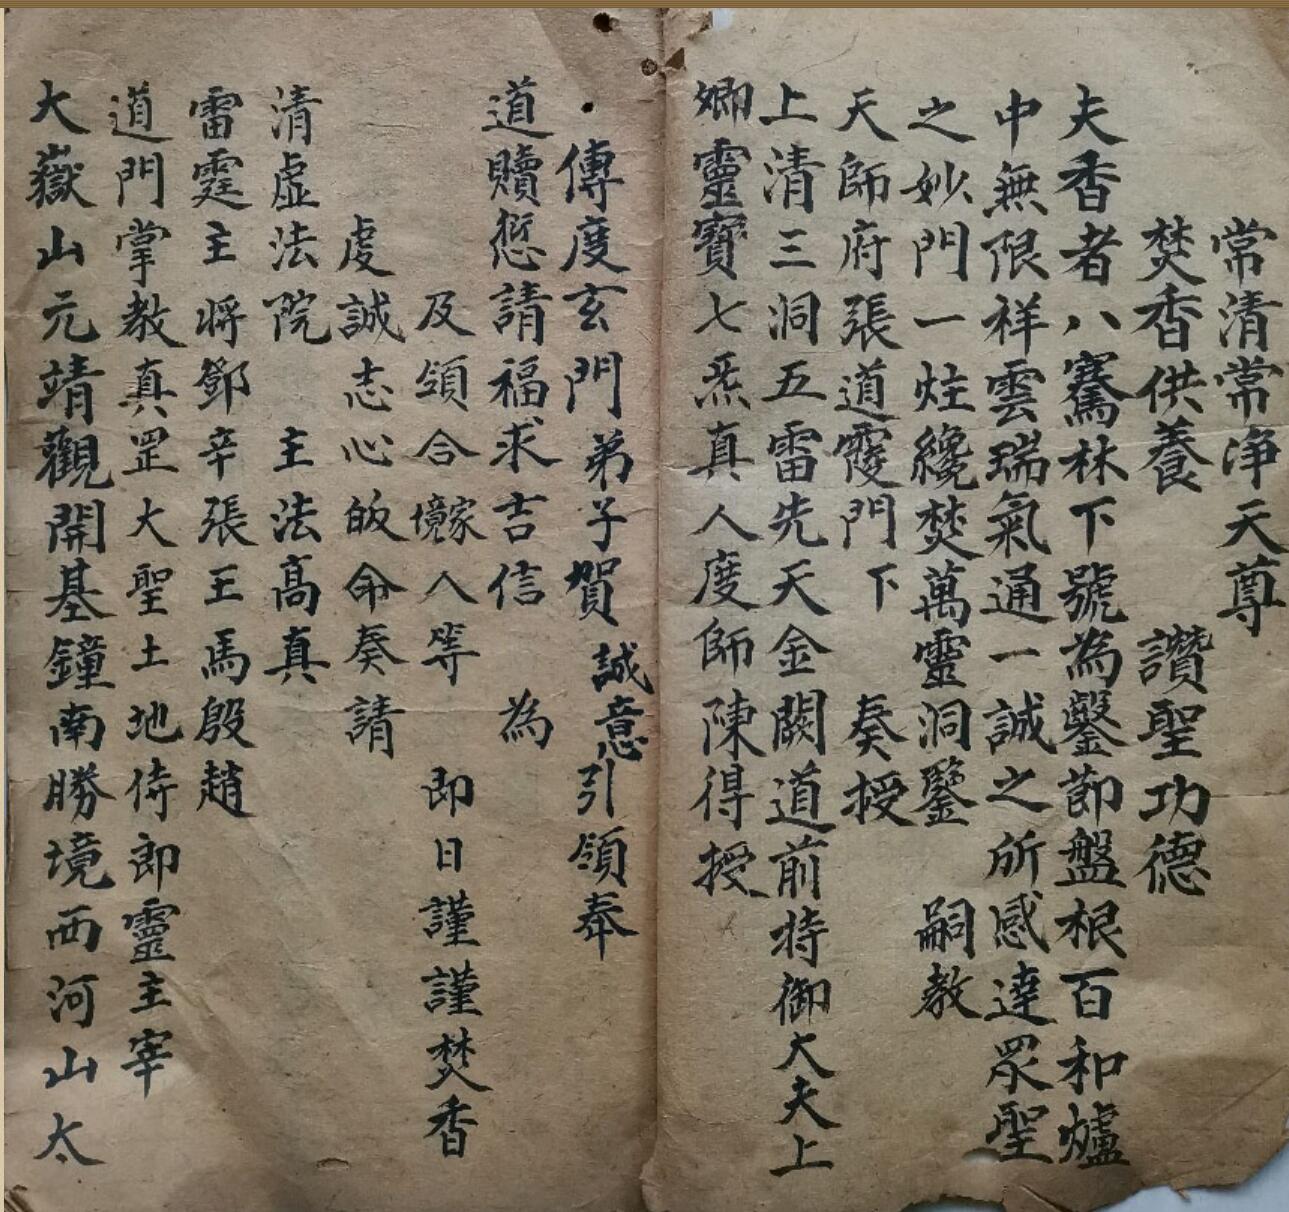 常清常淨天尊
焚香供養　讚聖功德
夫香者八騫林下號為鑿節盤根百和爐
中無限祥雲瑞氣通一誠之所感達眾聖
之妙門一炷纔焚萬靈洞鑒　嗣教
天師府張道霞門下　奏授
上清三洞五雷先天金闕道前持御大夫上
卿靈寶七炁真人度師陳得授
傳度玄門弟子賀誠意引領奉
道贖愆請福求吉信　為
及領合家境人等　即日謹謹焚香
虔誠志心皈命奏請
清虛法院　主法高真
雷霆主將鄧辛張王馬殷趙
道門掌教真罡大聖土地侍郎靈主宰
大嶽山元靖觀開基鐘南勝境西河山太